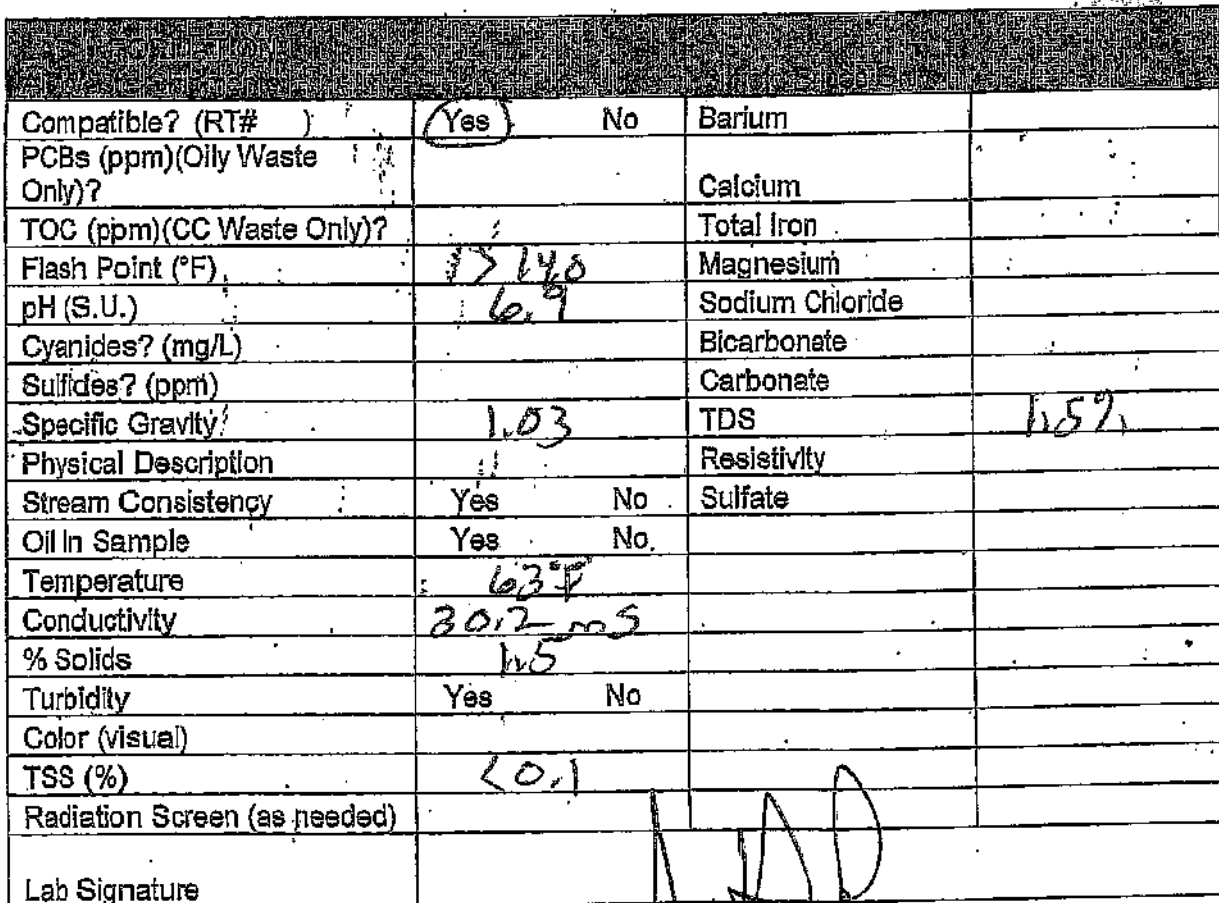 Compatible? (RT# ) Yes No Barium
PCBs (ppm)(Oily Waste
Only)? Calcium
TOC (ppm)(CC Waste Only)? Total Iron
Flash Point (°F) >140 Magnesium
pH (S.U.) 6.9 Sodium Chloride
Cyanides? (mg/L) Bicarbonate
Sulfides? (ppm) Carbonate
Specific Gravity 1.03 TDS 1.5%
Physical Description Resistivity
Stream Consistency Yes No Sulfate
Oil In Sample Yes No
Temperature 63°F
Conductivity 30.2 mS
% Solids 1.5
Turbidity Yes No
Color (visual)
TSS (%) <0.1
Radiation Screen (as needed)
Lab Signature